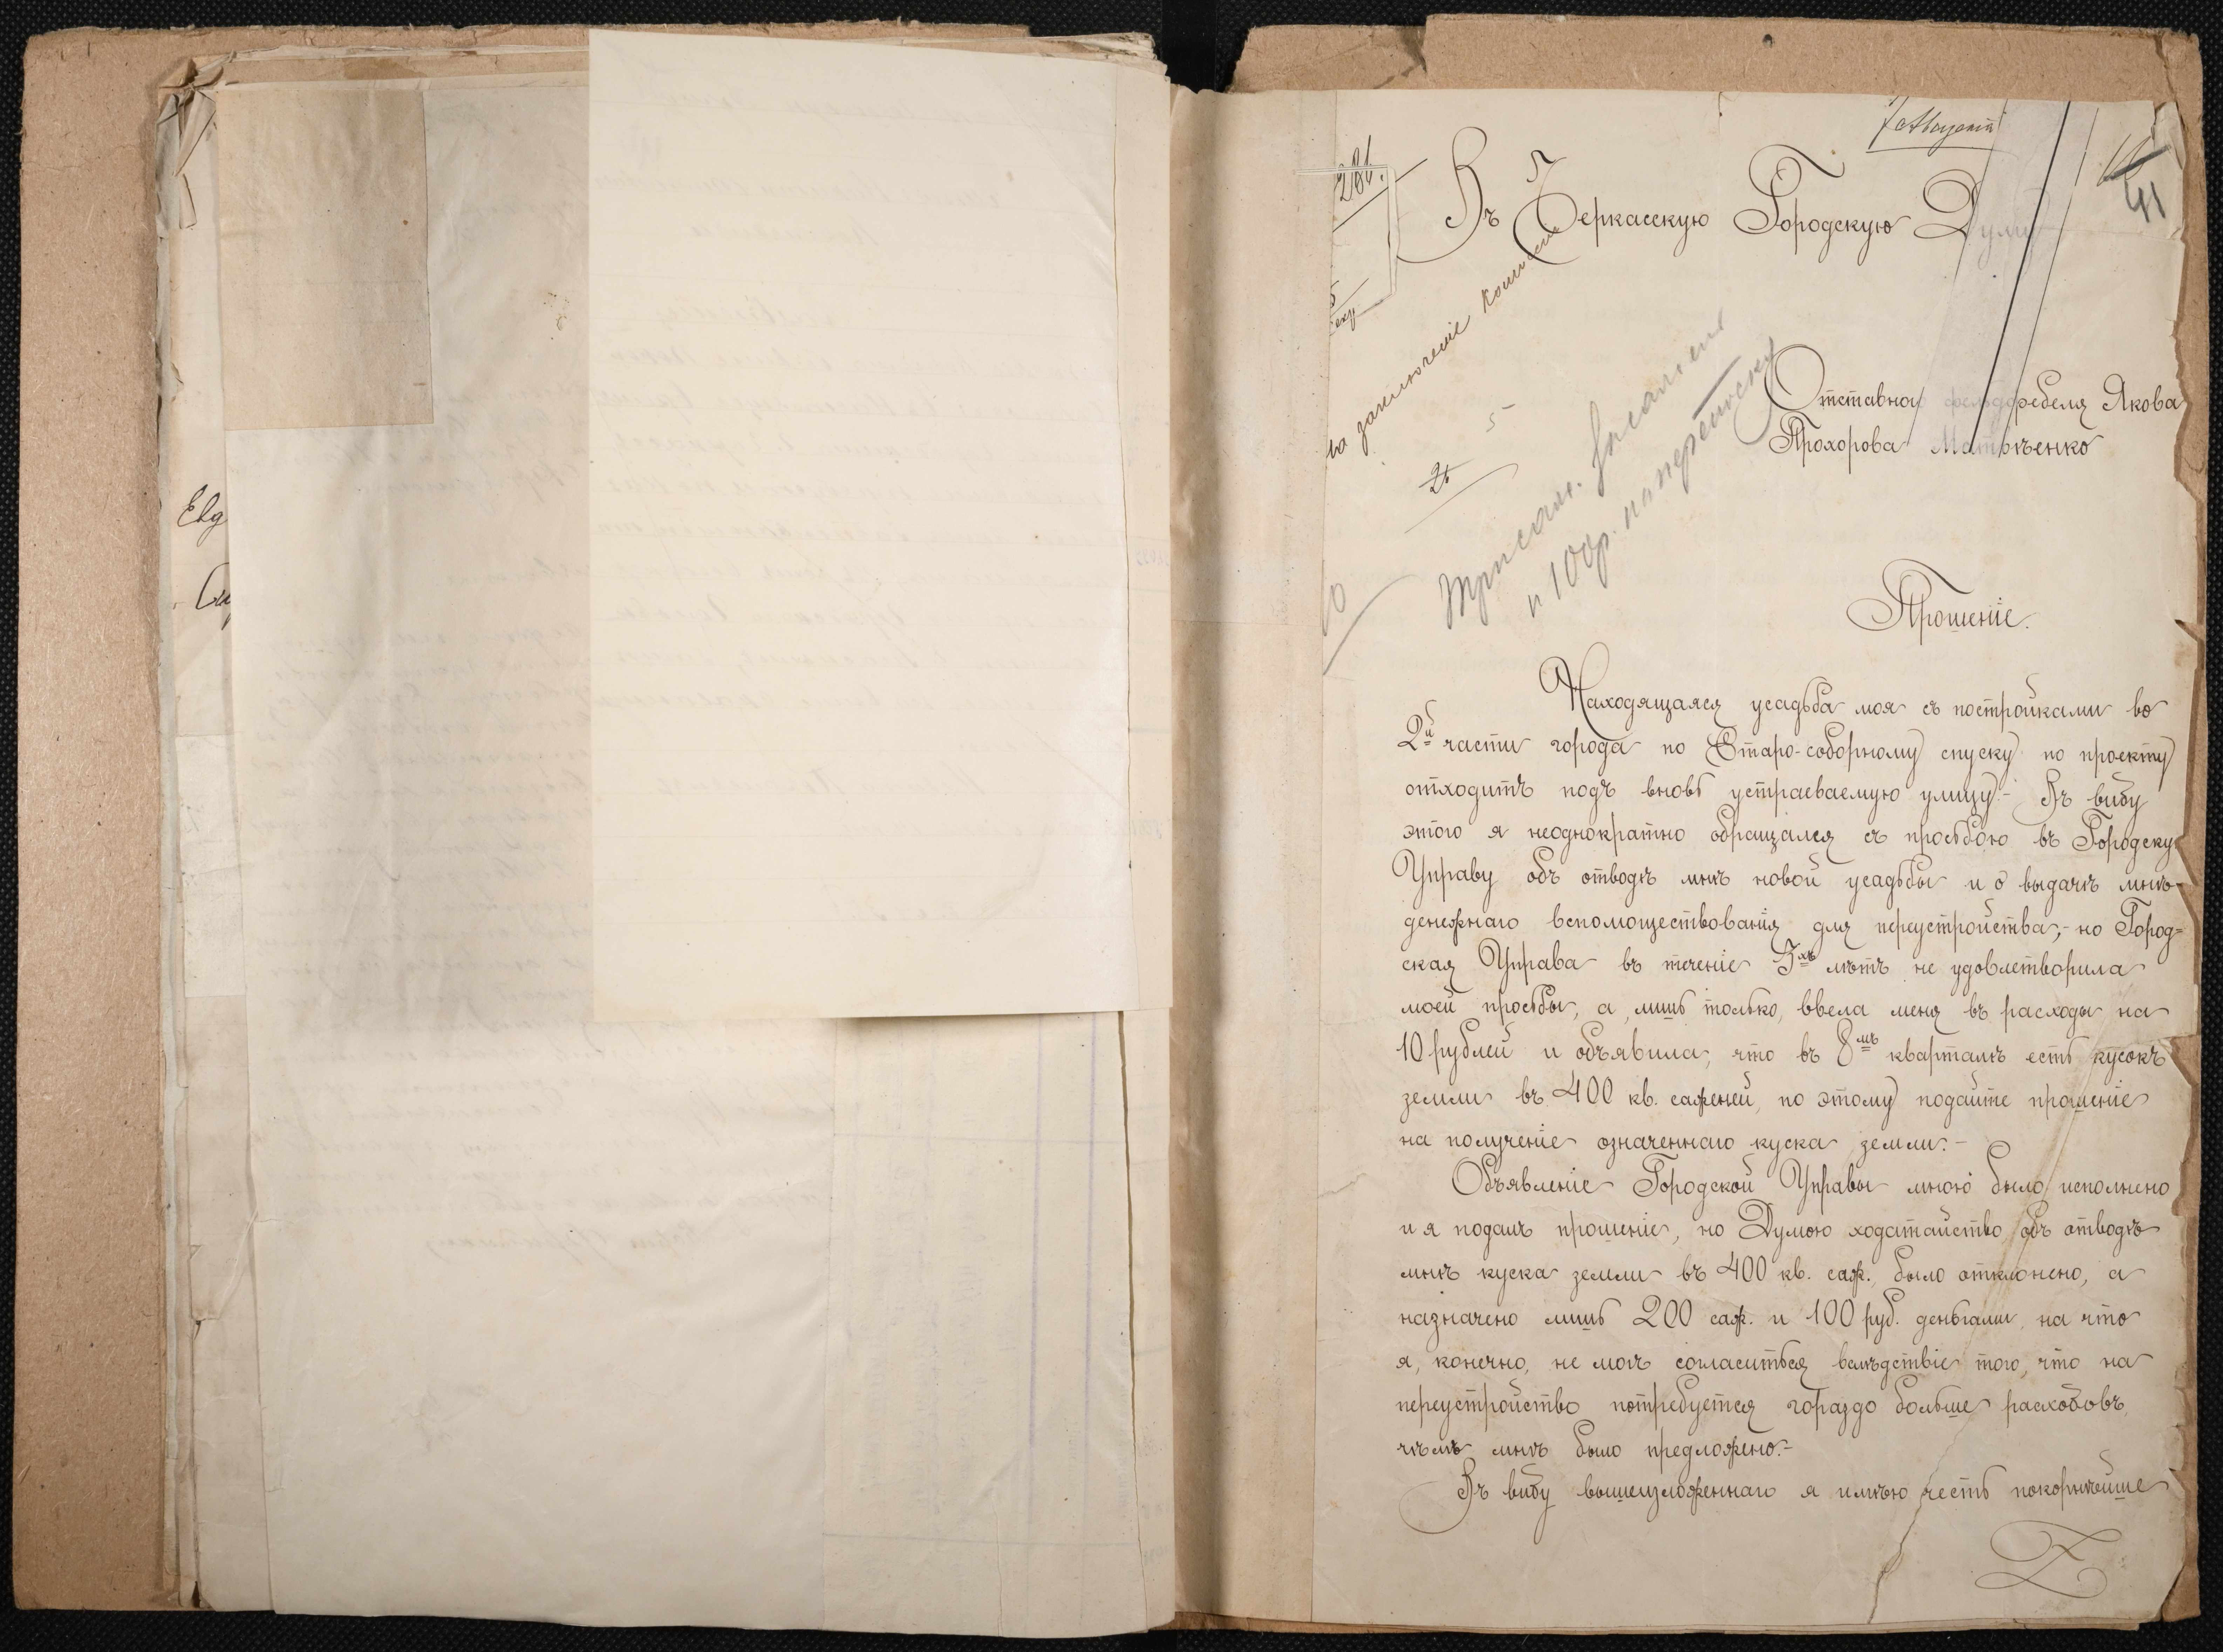 Евд
7 Августа
281.
41
Въ Черкасскую Городскую Думу
на заключеніе коммисіи
Отставного фельдфебеля Якова
Прохорова Матвѣенко
и 100р. на перестройку
Прошеніе.
Находящаяся усадьба моя съ постройками во
2й части города по Старо-соборному спуску по проекту
отходитъ подъ вновь устраеваемую улицу.- Въ виду
этого я неоднократно обращался съ просьбою въ Городску
Управу объ отводѣ мнѣ новой усадьбы и о выдачѣ мнѣ
денежнаго вспомоществованія для переустройства,- но Город=
ская Управа въ теченіе 3хъ лѣтъ не удовлетворила
моей просьбы, а, лишь только, ввела меня въ расходы на
10 рублей и объявила, что въ 8мъ кварталѣ есть кусокъ
земли въ 400 кв. саженей, по этому подайте прошеніе
на полученіе означеннаго куска земли.-
Объявленіе Городской Управы мною было исполнено
и я подалъ прошеніе, но Думою ходатайство объ отводѣ
мнѣ куска земли въ 400 кв. саж., было отклонено, а
назначено лишь 200 саж. и 100 руб. деньгами, на что
я, конечно, не могъ согласиться вслѣдствіе того, что на
переустройство потребуется гораздо больше расходовъ,
чѣмъ мнѣ было предложено.-
Въ виду вышеизложеннаго я имѣю честь покорнѣйше